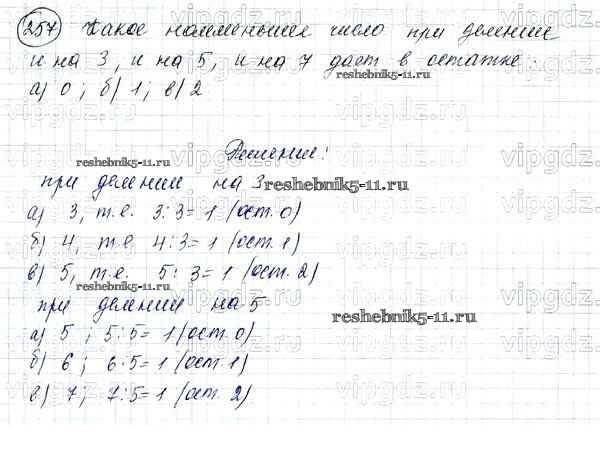 257 Какое наименьшее число при делении
и на 3, и на 5, и на 7 дает в остатке:
а) 0; б) 1; в) 2
Решение:
reshebnik5-11.ru
при делении на 3
reshebnik5-11.ru
а) 3, т.е. 3:3=1 (ост.0)
б) 4, т.е 4:3=1 (ост.1)
в) 5, т.е. 5:3=1 (ост.2)
при делении на 5
а) 5; 5:5=1 (ост.0)
б) 6; 6:5=1 (ост.1)
в) 7; 7:5=1 (ост.2)
reshebnik5-11.ru
reshebnik5-11.ru
reshebnik5-11.ru
vipgdz.ru